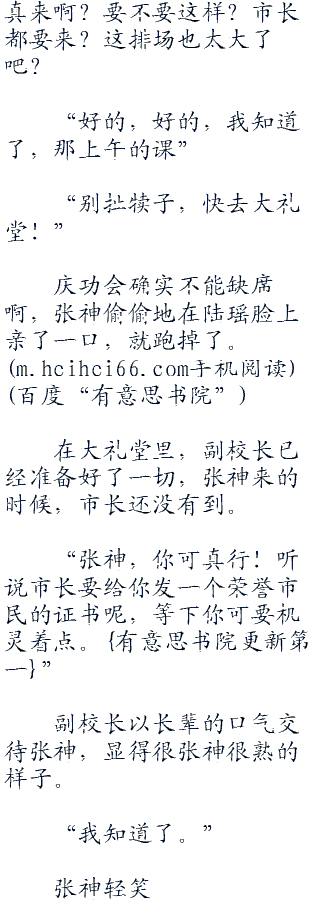 真来啊？要不要这样？市长
都要来？这排场也太大了
吧？
“好的，好的，我知道
了，那上午的课”
“别扯犊子，快去大礼
堂！”
庆功会确实不能缺席
啊，张神偷偷地在陆瑶脸上
亲了一口，就跑掉了。
(m.hcihci66.com手机阅读)
(百度“有意思书院”)
在大礼堂里，副校长已
经准备好了一切，张神来的
时候，市长还没有到。
“张神，你可真行！听
说市长要给你发一个荣誉市
民的证书呢，等下你可要机
灵着点。{有意思书院更新第
一}”
副校长以长辈的口气交
待张神，显得很张神很熟的
样子。
“我知道了。”
张神轻笑